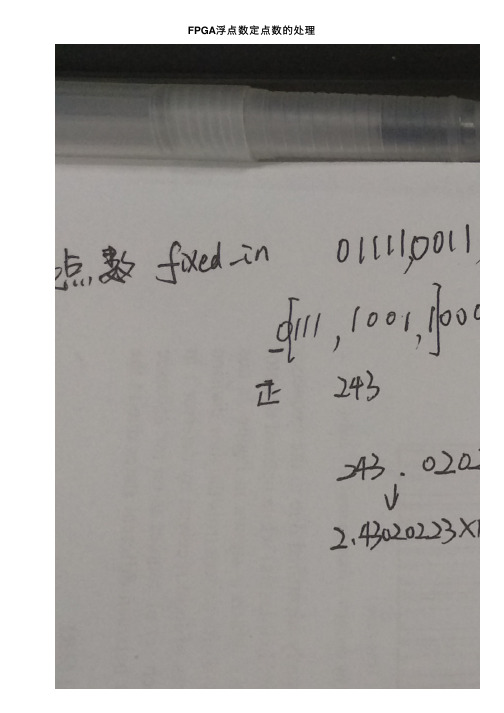 FPGA浮点数定点数的处理
点数 fixed_in 01111,0011,
0[111,1001,1]000
正 243
243.0202
2.43020223×1